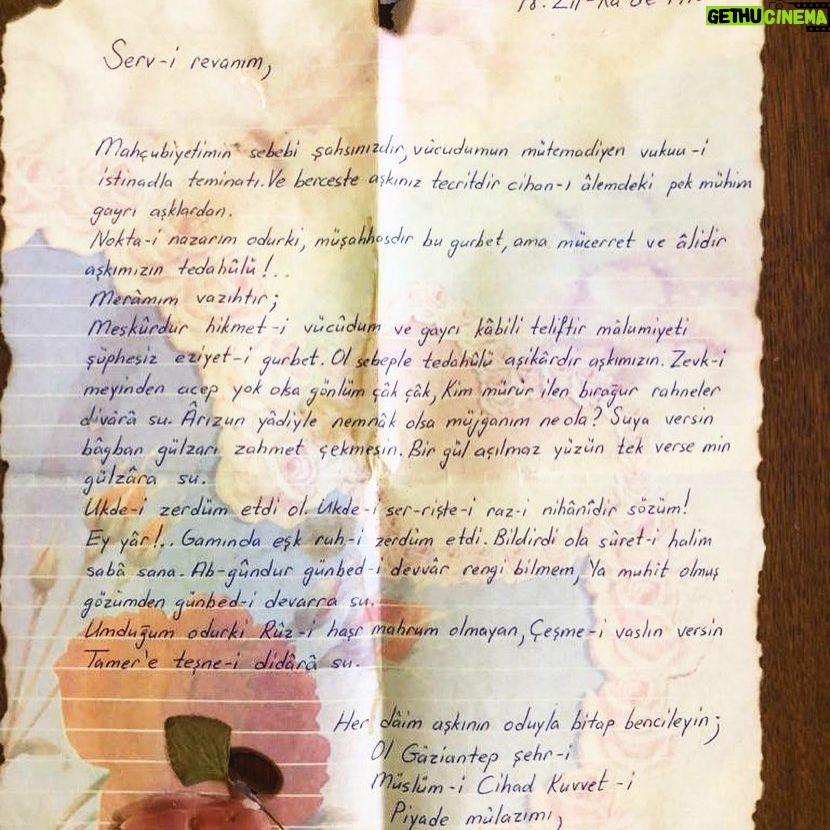 GETHUCINEMA
18. Zil-ka'de
Serv-i revanım,
Mahçubiyetimin sebebi şahsınızdır, vücudumun mütemadiyen vukuu-i
istinadla teminatı. Ve berceste aşkınız tecritdir cihan-ı âlemdeki pek mühim
gayrı aşklardan.
Nokta-i nazarım odurki, müşahhasdır bu gurbet, ama mücerret ve âlidir
aşkımızın tedahûlü!..
Merâmım vazıhtır;
Meskûrdur hikmet-i vücûdum ve gayrı kâbili teliftir mâlumiyeti
şüphesiz eziyet-i gurbet. Ol sebeple tedahûlü aşikârdır aşkımızın. Zevk-i
meyinden acep yok olsa gönlüm çâk çâk, Kim mürûr ilen bırağur rahneler
dıvârâ su. Ârizun yâdiyle nemnâk olsa müjganım ne ola? Suya versin
bâğban gülzarı zahmet çekmesin. Bir gül açılmaz yüzün tek verse min
gülzâra su.
Ukde-i zerdüm etdi ol. Ukde-i ser-rişte-i raz-i nihânîdir sözüm!
Ey yâr!.. Gamında eşk ruh-i zerdüm etdi. Bildirdi ola sûret-i halim
sabâ sana. Ab-gûndur günbed-i devvâr rengi bilmem, Ya muhit olmuş
gözümden günbed-i devarra su.
Umduğum odurki Rûz-i haşr mahrum olmayan, Çeşme-i vaslın versin
Tamer'e teşne-i didârâ su.
Her dâim aşkının oduyla bitap bencileyin;
Ol Gâziantep şehr-i
Müslüm-i Cihad Kuvvet-i
Piyade mülazımı,